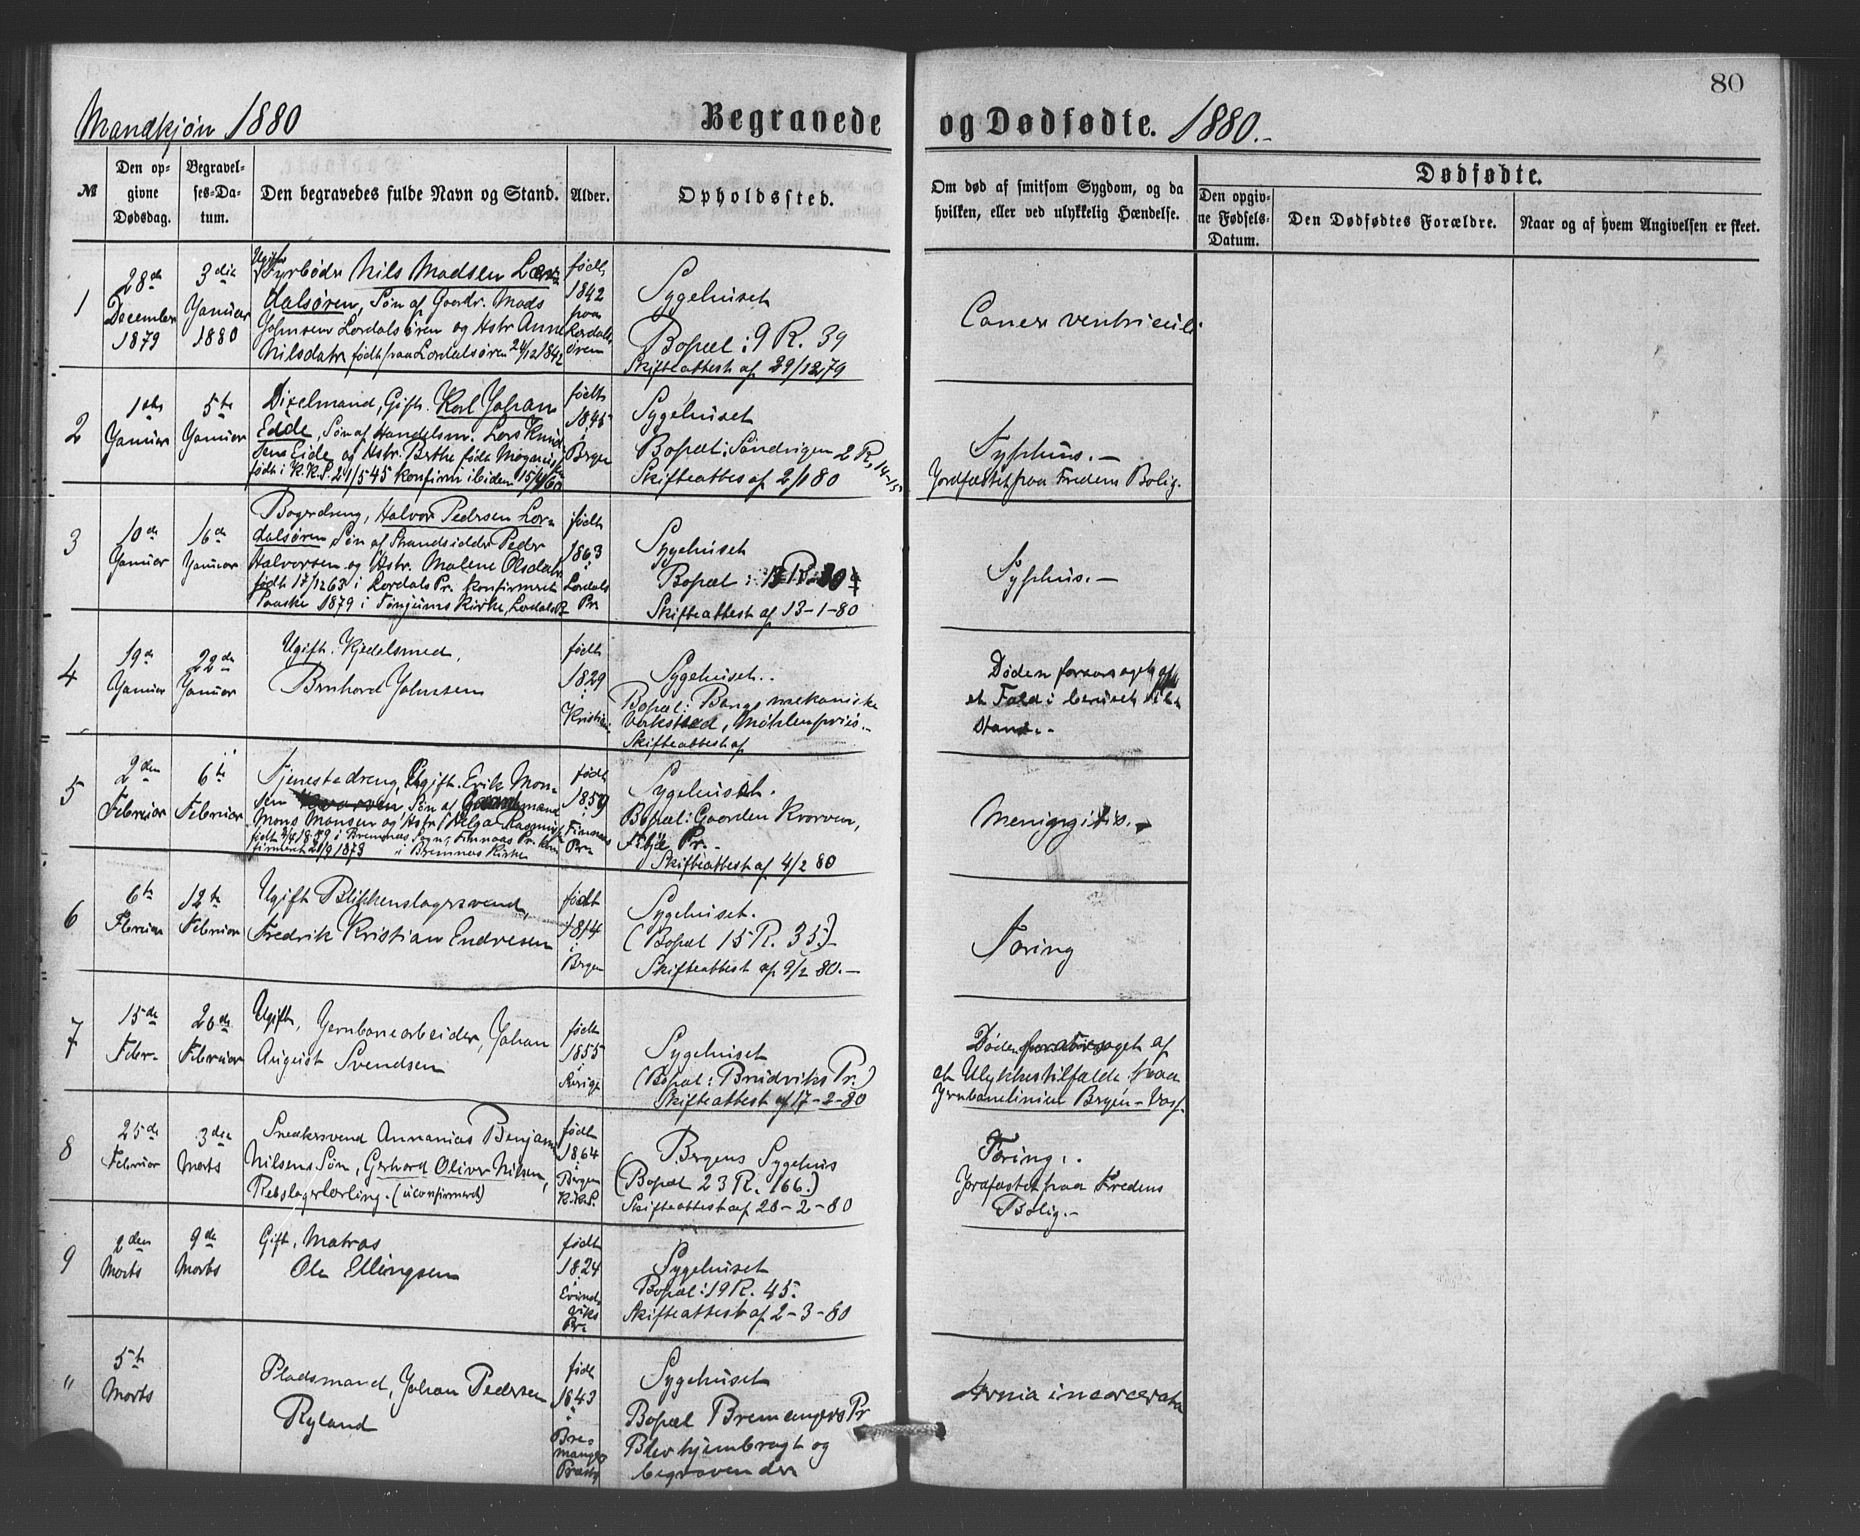 80
Mandkjön 1880
Begravede og Dødfødte. 1880.-
№
Den op-
givne
Dødsdag.
Begravel-
ses-Da-
tum.
Den begravedes fulde Navn og Stand.
Alder.
Opholdssted.
Om død af smitsom Sygdom, og da
hvilken, eller ved ulykkelig Hændelse.
Dødfødte.
Den opgiv-
ne Fødsels-
Datum.
Den Dødfødtes Forældre.
Naar og af hvem Angivelsen er skeet.
1
28de
December
1879
3die
Januar
1880
Ugift
Fyrböder Nils Madsen Lær-
dalsören, Sön af Gaardr. Mads
Johnsen Lærdalsören og Hstr Anne
Nilsdatr födt paa Lærdalsören 24/12 1842
födt
1842
paa
Lærdals-
ören
Sygehuset
Bopæl: 9 R. 39
Skifteattest af 29/12 79
Cancer ventriculi
2
1ste
Januar
5te
Januar
Dixelmand, Gift. Karl Johan
Eide, Sön af Handelsm. Lars Knud
sen Eide og Hstr. Berthe födt
födt i K.K.S. 21/5 45 konfirm ibiden 15/4/60
födt
1845
i
Bergen
Sygehuset
Bopæl: Sandvigen 2 R, 14-15
Skifteattes af 2/1 80
Tyfhus.-
Jordfæstet paa Fredens Bolig.
3
10de
Januar
16de
Januar
Bagerdreng, Halvor Pedersen Lær-
dalsören, Sön af Strandsidder Peder
Halvorsen og Hstr. Malene Olsdatr
födt 17/12 63 i Lærdals Pr. konfirmeret
Paaske 1879 i Tönjums Kirke, Lærdals Pr
födt
1863
i
Lærdals
Pr
Sygehuset
Bopæl:
Skifteattest af 13-1-80
Tyfhus.-
4
19de
Januar
22de
Januar
Ugift. Kjedelsmed,
Bernhard Johnsen
födt
1829
i
Kristian
Sygehuset.
Bopæl: Bergs mekaniske
Værksted, Möhlenpriis.-
Skifteattest af
Döden foraarsaget af
et Fald i beruset Til-
stand.-
5
2den
Februar
6te
Februar
Tjenestedreng, Ugift. Erik Mon-
sen Kvarven, Sön af Gaardmand
Mons Monsen og Hstr Helga Rasmus
i Bremnes Sogn, Finnaas Pr. kon
firmeret 21/9 1873 i Bremnes Kirke
födt
1859
i
Finnaas
Pr.
Sygehuset.
Bopæl: Gaarden Kvarven,
Fjeld Pr.
Skifteattest af 4/2 80
Meningitis.-
6
6te
Februar
12te
Februar
Ugift Blikkenslagersvend,
Fredrik Kristian Endresen
födt
1814
i
Bergen
Sygehuset.
(Bopæl 15 R. 35)
Skifteattest af 9/2 80.-
Tæring
7
15de
Febr-
20de
Februar
Ugift, Jernbanearbeider, Johan
August Svendsen
födt
1855
i
Sverige
Sygehuset
(Bopæl: Brudviks Pr.)
Skifteattest af 17-2-80
Döden foraarsaget af
et Ulykkestilfælde paa
Jernbanelinien Bergen-Voss.
8
25de
Februar
3die
Marts
Snedkersvend Annanias Benjamin
Nilsens Sön, Gerhard Oliver Nilsen,
Rebslagerlærling. (uconfirmeret)
födt
1864
i
Bergen
K.K.S.
Bergens Sygehus
(Bopæl 23 R. 166.)
Skifteattest af 28-2-80
Tæring.
Jordfæstet paa Fredens
Bolig.-
9
2den
Marts
9de
Marts
Gift, Matros
Ole Ellingsen
födt
1824
i
Evind-
viks
Pr.
Sygehuset
Bopæl: 19 R. 45.
Skifteattest af 2-3-80
"
5te
Marts
Pladsmand, Johan Pedersen
Ryland
födt
1843
i
Bre-
manger
Præstg
Sygehuset
Bopæl Bremangers Pr
Blev hjembragt og
begraven der
Hernia incarcerata